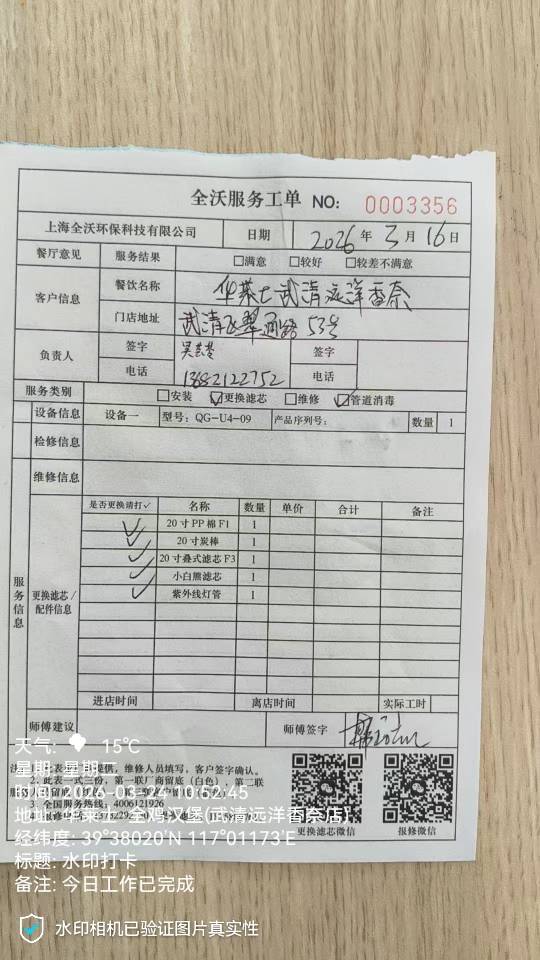 全沃服务工单 NO: 0003356
上海全沃环保科技有限公司 日期 2026年3月16日
餐厅意见 服务结果 □满意 □较好 □较差不满意
客户信息 餐饮名称 华莱士武清远洋香奈
门店地址 武清区翠通路53号
负责人 签字 签字
电话 13682122752 电话
服务类别 □安装 ☑更换滤芯 □维修 ☑管道消毒
设备信息 设备一 型号: QG-U4-09 产品序列号: 数量 1
检修信息
维修信息
服务信息
更换滤芯/配件信息
是否更换请打✓ 名称 数量 单价 合计 备注
✓ 20寸PP棉F1 1
✓ 20寸炭棒 1
✓ 20寸叠式滤芯F3 1
✓ 小白熊滤芯 1
✓ 紫外线灯管 1
进店时间 离店时间 实际工时
师傅建议 师傅签字
提供, 维修人员填写, 客户签字确认。
2.此表一式三份, 第一联厂商留底(白色), 第二联
3.全国服务热线: 4006121926
更换滤芯微信 报修微信
天气: 15℃
星期: 星期二
时间: 2026-03-24 10:52:45
地址: 华莱士·全鸡汉堡(武清远洋香奈店)
经纬度: 39°38020'N 117°01173'E
标题: 水印打卡
备注: 今日工作已完成
水印相机已验证图片真实性